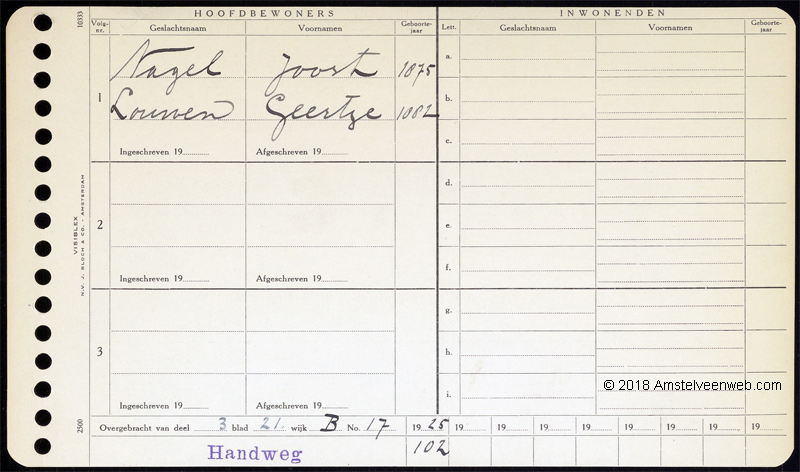 HOOFDBEWONERS
INWONENDEN
Volg-nr. Geslachtsnaam Voornamen Geboorte-jaar
Lett. Geslachtsnaam Voornamen Geboorte-jaar
1 Nagel Joost 1875
Louwen Geertje 1882
Ingeschreven 19 Afgeschreven 19
2
Ingeschreven 19 Afgeschreven 19
3
Ingeschreven 19 Afgeschreven 19
a.
b.
c.
d.
e.
f.
g.
h.
i.
Overgebracht van deel 3 blad 21. wijk B No. 17 1925 19 19 19 19 19 19 19 19
Handweg 102
10333
VISIBLEX
N.V. J. BLOCH & CO. - AMSTERDAM
2500
© 2018 Amstelveenweb.com